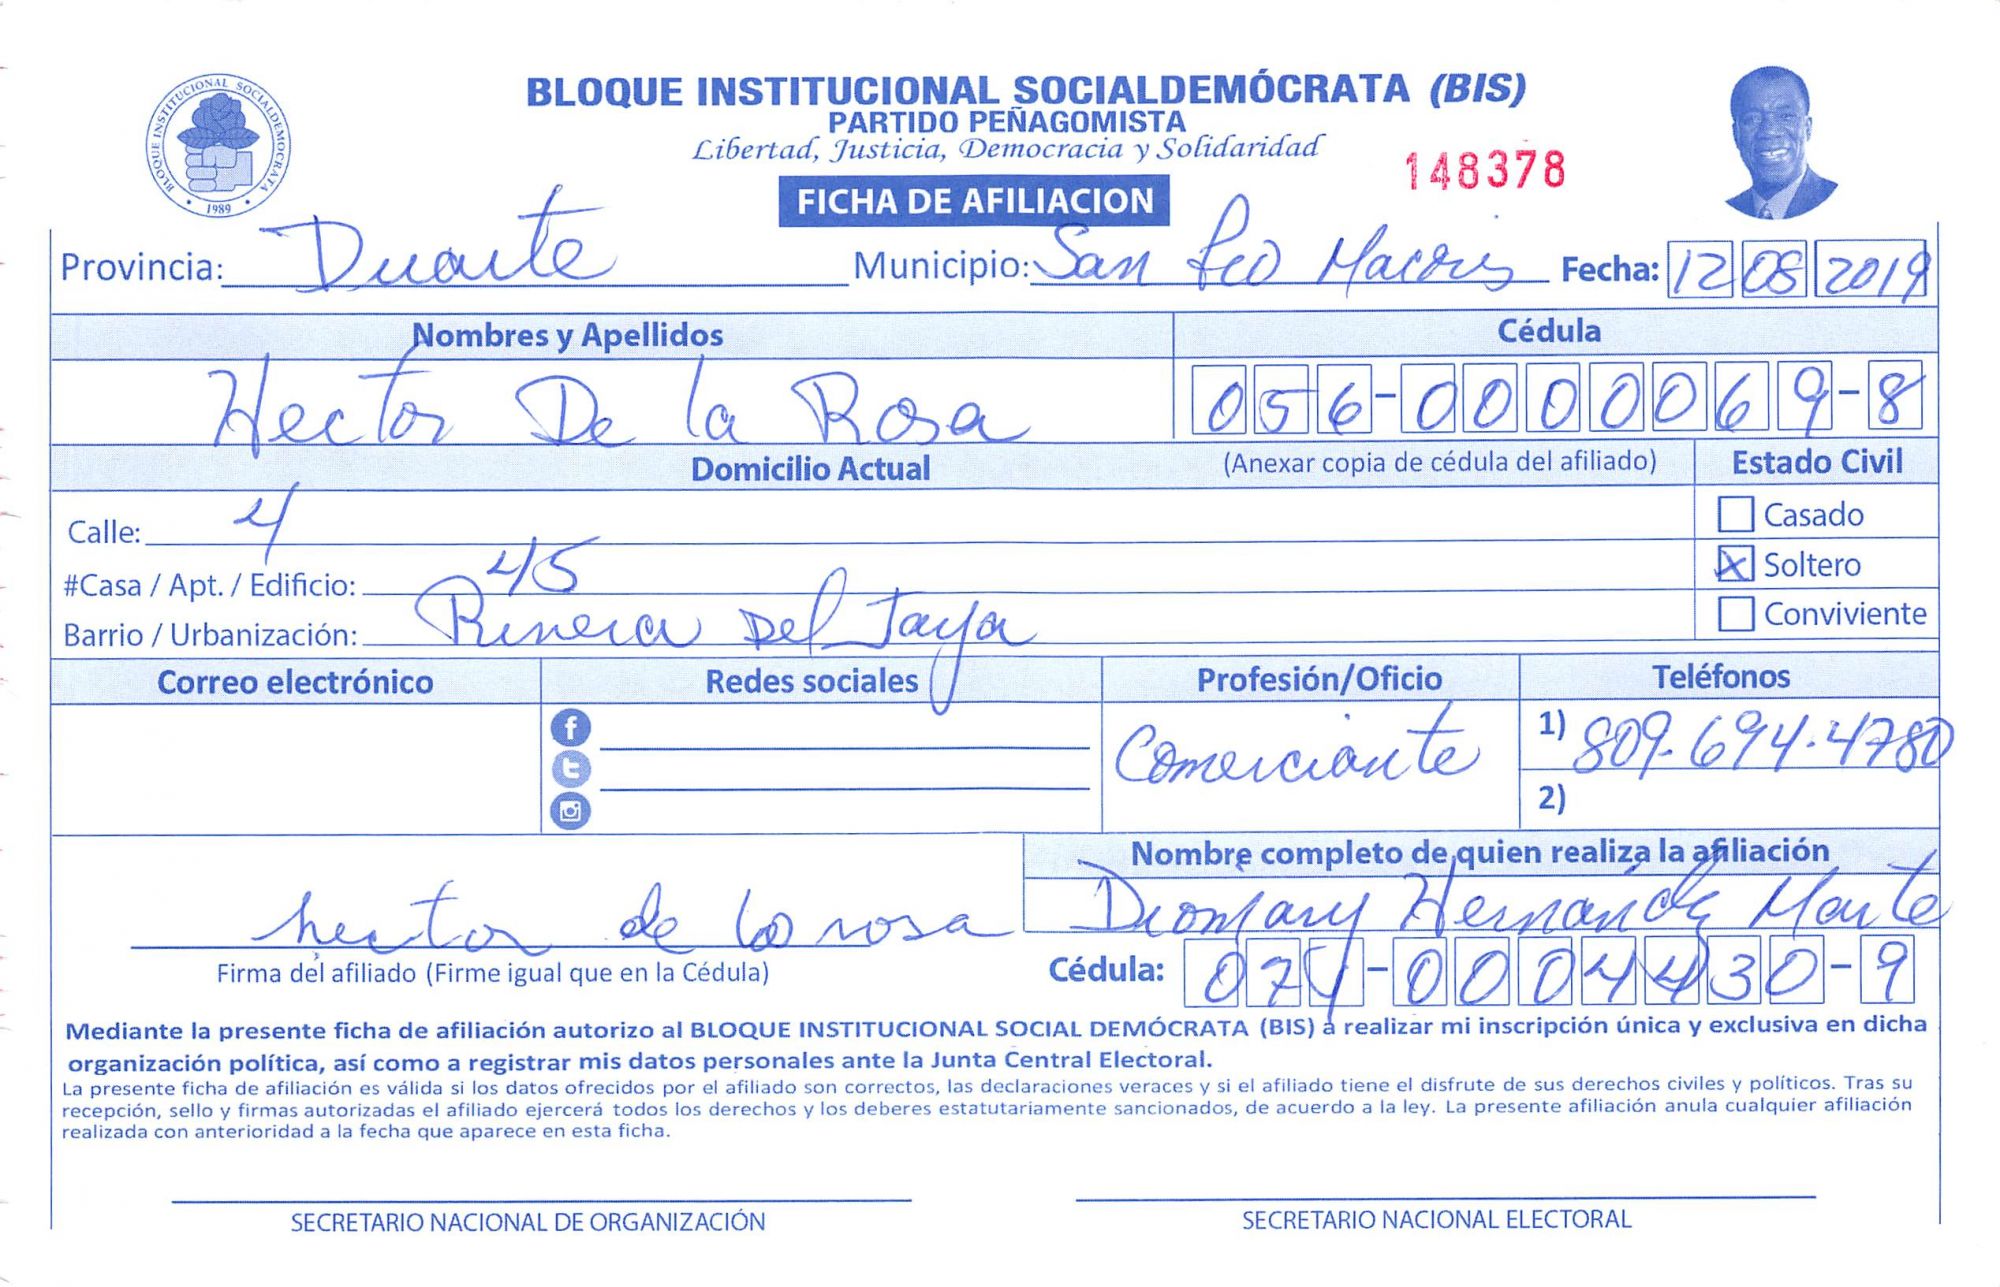 BLOQUE INSTITUCIONAL SOCIALDEMÓCRATA (BIS)
PARTIDO PEÑAGOMISTA
Libertad, Justicia, Democracia y Solidaridad
148378
BLOQUE INSTITUCIONAL SOCIALDEMOCRATA
1989
FICHA DE AFILIACION
Provincia: Duarte Municipio: San Fco Macoris Fecha: 12 08 2019
Nombres y Apellidos Cédula
Hector De la Rosa 056-0000069-8
Domicilio Actual (Anexar copia de cédula del afiliado) Estado Civil
Calle: 4 Casado
#Casa / Apt. / Edificio: 45 Soltero
Barrio / Urbanización: Rivera Del Jaya Conviviente
Correo electrónico Redes sociales Profesión/Oficio Teléfonos
Comerciante 1) 809-694-4780
2)
Nombre completo de quien realiza la afiliación
hector de la rosa Hernández Marte
Firma del afiliado (Firme igual que en la Cédula) Cédula: 071-0004430-9
Mediante la presente ficha de afiliación autorizo al BLOQUE INSTITUCIONAL SOCIAL DEMÓCRATA (BIS) a realizar mi inscripción única y exclusiva en dicha
organización política, así como a registrar mis datos personales ante la Junta Central Electoral.
La presente ficha de afiliación es válida si los datos ofrecidos por el afiliado son correctos, las declaraciones veraces y si el afiliado tiene el disfrute de sus derechos civiles y políticos. Tras su
recepción, sello y firmas autorizadas el afiliado ejercerá todos los derechos y los deberes estatutariamente sancionados, de acuerdo a la ley. La presente afiliación anula cualquier afiliación
realizada con anterioridad a la fecha que aparece en esta ficha.
SECRETARIO NACIONAL DE ORGANIZACIÓN SECRETARIO NACIONAL ELECTORAL